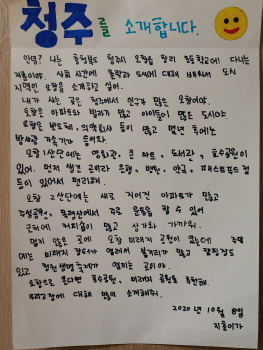 청주를 소개합니다.
안녕? 나는 충청북도 청주시 오창읍 창리 초등학교에 다니는
지율이야. 사회 시간에 촌락과 도시에 대해 배워서 도시
지역인 오창을 소개하고 싶어.
내가 사는 곳은 청주에서 인구가 많은 오창이야.
오창은 아파트와 빌라가 많고 아이들이 많은 도시야
오창은 반도체, 의약 회사 등이 많고 몇년 뒤에는
방사광 가속기가 들어와.
오창 1산단에는 영화관, 큰 마트, 도서관, 호수공원이
있어. 먼저 생긴 곳이라 은행, 병원, 약국, 패스트푸드점
등이 있어서 편리해.
오창 2산단에는 새로 지어진 아파트가 많고
주성공원, 목령산에서 주로 운동을 할 수 있어
근처에 커피숍이 많고 상가와 가까워.
멀지 않은 곳에 오창 미래지 공원이 있는데 주말
에는 미래지 장터가 열려서 볼거리가 많고 캠핑장도
있고 청원생명축제가 열리는 곳이야.
오창으로 온다면 호수공원, 미래지 공원도 추천해.
우리고장에 대해 많이 소개해줘.
2020년 10월 8일
지율이가